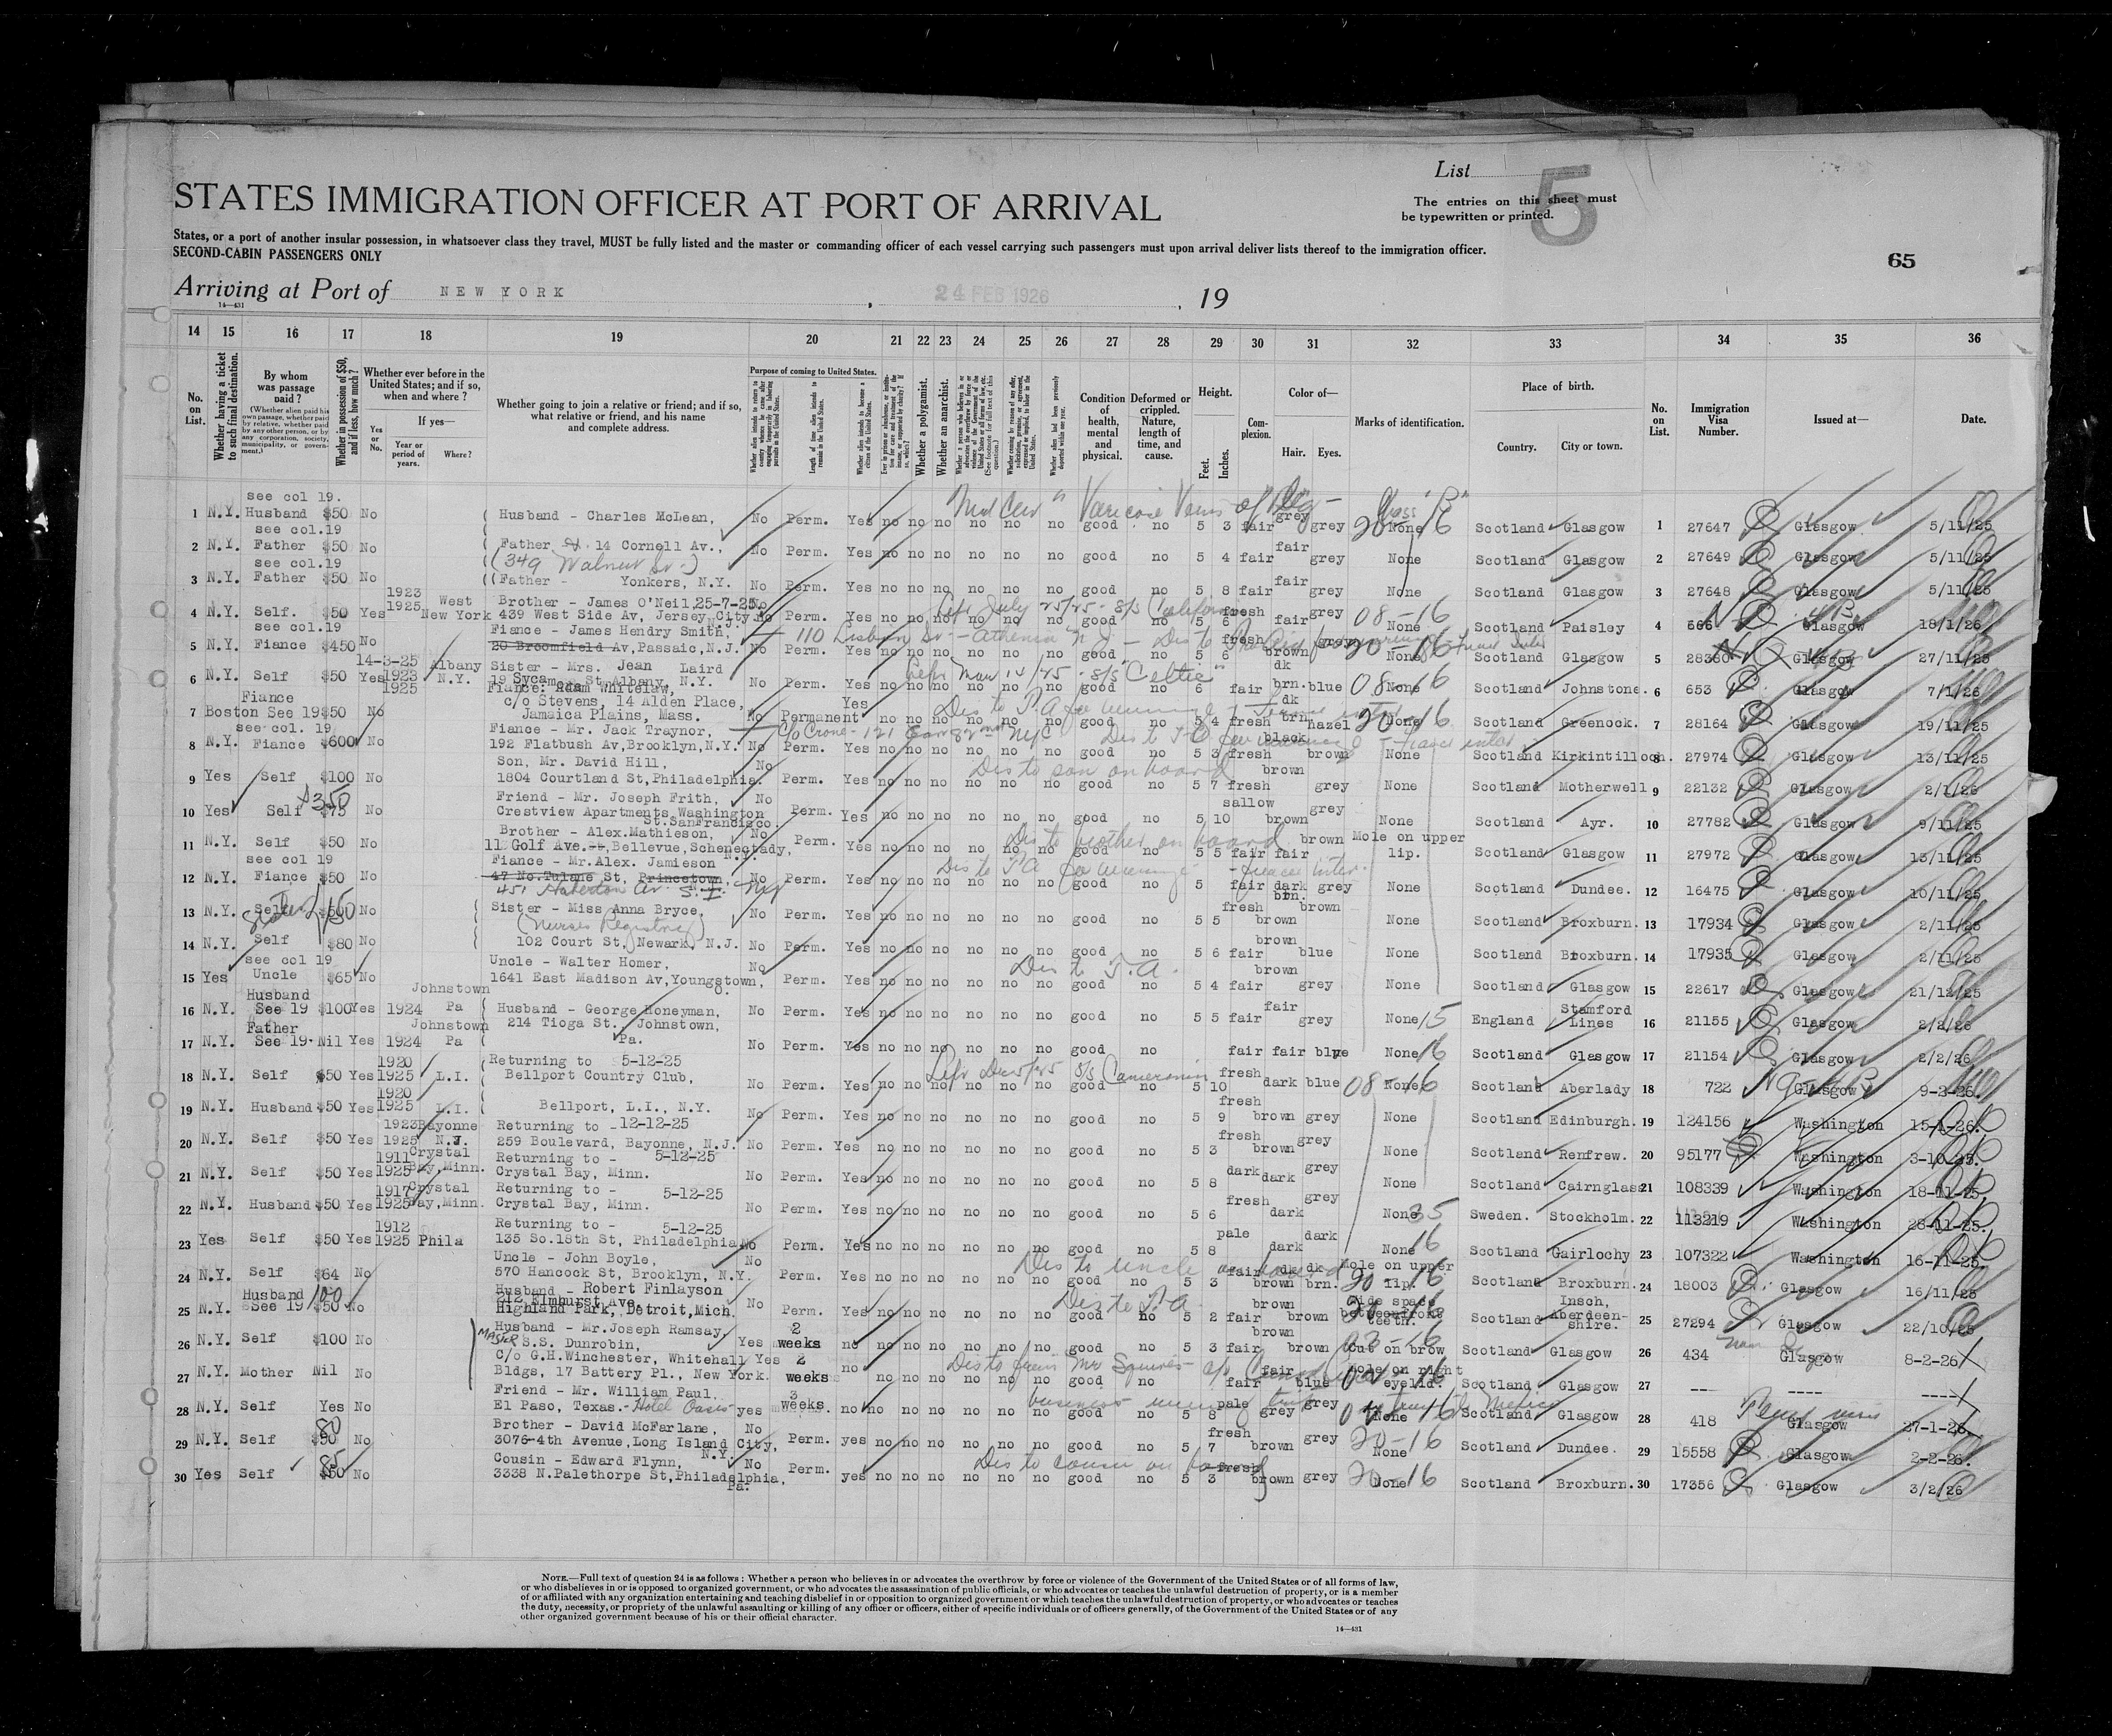 List
5
STATES IMMIGRATION OFFICER AT PORT OF ARRIVAL
The entries on this sheet must
be typewritten or printed.
States, or a port of another insular possession, in whatsoever class they travel, MUST be fully listed and the master or commanding officer of each vessel carrying such passengers must upon arrival deliver lists thereof to the immigration officer.
SECOND-CABIN PASSENGERS ONLY
65
Arriving at Port of NEW YORK , 24 FEB 1926 , 19
14—431
14 15 16 17 18 19 20 21 22 23 24 25 26 27 28 29 30 31 32 33 34 35 36
No. on List.
Whether having a ticket to such final destination.
By whom was passage paid ?
(Whether alien paid his own passage, whether paid by relative, whether paid by any other person, or by any corporation, society, municipality, or government.)
Whether in possession of $50, and if less, how much ?
Whether ever before in the United States; and if so, when and where ?
If yes—
Yes or No.
Year or period of years.
Where ?
Whether going to join a relative or friend; and if so, what relative or friend, and his name and complete address.
Purpose of coming to United States.
Length of time alien intends to remain in the United States.
Whether alien intends to become a citizen of the United States.
Whether a polygamist.
Whether an anarchist.
Condition of health, mental and physical.
Deformed or crippled. Nature, length of time, and cause.
Height.
Feet. Inches.
Complexion.
Color of—
Hair. Eyes.
Marks of identification.
Place of birth.
Country. City or town.
No. on List.
Immigration Visa Number.
Issued at—
Date.
see col 19.
1 N.Y. Husband $50 No Husband - Charles McLean, No Perm. Yes no no no no no no good no 5 3 fair grey grey None Scotland Glasgow 1 27647 Glasgow 5/11/25
Varicose Veins of leg
see col.19
2 N.Y. Father $50 No Father 14 Cornell Av., No Perm. Yes no no no no no no good no 5 4 fair fair grey None Scotland Glasgow 2 27649 Glasgow 5/11/25
(349 Walnut St.)
see col.19
3 N.Y. Father $50 No Father - Yonkers, N.Y. No Perm. Yes no no no no no no good no 5 8 fair fair grey None Scotland Glasgow 3 27648 Glasgow 5/11/25
4 N.Y. Self. $50 Yes 1923 1925 West New York Brother - James O'Neil, 25-7-25
439 West Side Av, Jersey City No Perm. Yes no no no no no no good no 5 6 fresh fair grey 08-16 None Scotland Paisley 4 666 Glasgow 18/1/26
Left July 25/25 - S/S California
see col.19
5 N.Y. Fiance $450 No Fiance - James Hendry Smith,
20 Broomfield Av, Passaic, N.J. No Perm. Yes no no no no no no good no 5 6 fresh brown grey 20-16 None Scotland Glasgow 5 28380 Glasgow 27/11/25
6 N.Y. Self $50 Yes 14-3-25 1923 1925 Albany N.Y. Sister - Mrs. Jean Laird
19 Sycamore St Albany, N.Y. No Perm. Yes no no no no no no good no 6 fair dk brn. blue 08-16 None Scotland Johnstone. 6 653 Glasgow 7/1/26
Left Mar 14/25 - S/S "Celtic"
Fiance
7 Boston See 19 $50 No Fiance: Adam Whitelaw,
c/o Stevens, 14 Alden Place,
Jamaica Plains, Mass. No Permanent Yes no no no no no no good no 5 4 fresh dk brn hazel 20-16 None Scotland Greenock. 7 28164 Glasgow 19/11/25
see col. 19
8 N.Y. Fiance $600 No Fiance - Mr. Jack Traynor,
192 Flatbush Av, Brooklyn, N.Y. No Perm. Yes no no no no no no good no 5 3 fresh black brown None Scotland Kirkintilloch. 8 27974 Glasgow 13/11/25
9 Yes Self $100 No Son, Mr. David Hill,
1804 Courtland St, Philadelphia. No Perm. Yes no no no no no no good no 5 7 fresh brown grey None Scotland Motherwell 9 22132 Glasgow 2/1/26
Dis to son on board
10 Yes Self $75 $350 No Friend - Mr. Joseph Frith,
Crestview Apartments, Washington
St. San Francisco. No Perm. Yes no no no no no no good no 5 10 sallow brown grey None Scotland Ayr. 10 27782 Glasgow 9/11/25
11 N.Y. Self $50 No Brother - Alex. Mathieson,
112 Golf Ave., Bellevue, Schenectady, N.Y. No Perm. Yes no no no no no no good no 5 5 fair fair brown Mole on upper lip. Scotland Glasgow 11 27972 Glasgow 13/11/25
Dis to brother on board
see col 19
12 N.Y. Fiance $50 No Fiance - Mr. Alex. Jamieson
47 No. Tulane St, Princetown. No Perm. Yes no no no no no no good no 5 fair dark brn. grey None Scotland Dundee. 12 16475 Glasgow 10/11/25
13 N.Y. Self Sister $500 No Sister - Miss Anna Bryce. No Perm. Yes no no no no no no good no 5 5 fresh brown brown None Scotland Broxburn. 13 17934 Glasgow 2/11/25
(Nurses Registry)
14 N.Y. Self $80 No 102 Court St, Newark, N.J. No Perm. Yes no no no no no no good no 5 6 fair brown blue None Scotland Broxburn. 14 17935 Glasgow 2/11/25
see col 19
15 Yes Uncle $65 No Uncle - Walter Homer,
1641 East Madison Av, Youngstown, O. No Perm. Yes no no no no no no good no 5 4 fair brown grey None Scotland Glasgow 15 22617 Glasgow 21/12/25
Husband
16 N.Y. See 19 $100 Yes 1924 Johnstown Pa Husband - George Honeyman, No Perm. Yes no no no no no no good no 5 5 fair fair grey None 15 England Stamford Lines 16 21155 Glasgow 2/2/26
214 Tioga St., Johnstown, Pa.
Father
17 N.Y. See 19 Nil Yes 1924 Johnstown Pa No Perm. Yes no no no no no no good no fair fair blue None 16 Scotland Glasgow 17 21154 Glasgow 2/2/26
18 N.Y. Self $50 Yes 1920 1925 L.I. Returning to 5-12-25
Bellport Country Club, No Perm. Yes no no no no no no good no 5 10 fresh dark blue 08-16 None Scotland Aberlady 18 722 Glasgow 9-2-26.
19 N.Y. Husband $50 Yes 1920 1925 L.I. Bellport, L.I., N.Y. No Perm. Yes no no no no no no good no 5 9 fresh brown grey None Scotland Edinburgh. 19 124156 Washington 15-1-26.
20 N.Y. Self $50 Yes 1923 1925 Bayonne N.J. Returning to - 12-12-25
259 Boulevard, Bayonne, N.J. No Perm. Yes no no no no no no good no 5 3 fresh brown grey None Scotland Renfrew. 20 95177 Washington 3-10-25.
21 N.Y. Self $50 Yes 1911 1925 Crystal Bay, Minn. Returning to - 5-12-25
Crystal Bay, Minn. No Perm. Yes no no no no no no good no 5 8 dark dark grey None Scotland Cairnglass 21 108339 Washington 18-11-25.
22 N.Y. Husband $50 Yes 1917 1925 Crystal Bay, Minn. Returning to - 5-12-25
Crystal Bay, Minn. No Perm. Yes no no no no no no good no 5 6 fresh dark grey None 35 Sweden. Stockholm. 22 113219 Washington 28-11-25.
23 Yes Self $50 Yes 1912 1925 Phila Returning to - 5-12-25
135 So.18th St, Philadelphia No Perm. Yes no no no no no no good no 5 8 pale dark dark None 16 Scotland Gairlochy 23 107322 Washington 16-11-25.
24 N.Y. Self $64 No Uncle - John Boyle,
570 Hancock St, Brooklyn, N.Y. No Perm. Yes no no no no no no good no 5 3 fair dk brown dk brn. Mole on upper lip. 20-16 Scotland Broxburn. 24 18003 Glasgow 16/11/25
Husband
25 N.Y. See 19 $50 100 No Husband - Robert Finlayson
212 Elmhurst Ave.
Highland Park, Detroit, Mich. No Perm. Yes no no no no no no good no 5 2 fair brown brown Wide space between front teeth. Scotland Insch, Aberdeenshire. 25 27294 Glasgow 22/10/25
26 N.Y. Self $100 No Husband - Mr. Joseph Ramsay,
MASTER S.S. Dunrobin, Yes 2 weeks no no no no no no no good no 5 3 fair brown brown Cut on brow Scotland Glasgow 26 434 Glasgow 8-2-26
C/o G.H. Winchester, Whitehall
27 N.Y. Mother Nil No Bldgs, 17 Battery Pl., New York. Yes 2 weeks no no no no no no no good no fair fair blue Mole on right eyelid. Scotland Glasgow 27 ---- ---- ----
28 N.Y. Self Yes No Friend - Mr. William Paul.
El Paso, Texas. - Hotel Oasis yes 3 weeks. no no no no no no no good no 5 8 pale grey grey None Scotland Glasgow 28 418 Glasgow 27-1-26
29 N.Y. Self $50 80 No Brother - David McFarlane,
3076-4th Avenue, Long Island City, N.Y. No Perm. yes no no no no no no good no 5 7 fresh brown grey 20-16 None Scotland Dundee. 29 15558 Glasgow 2-2-26.
30 Yes Self $50 85 No Cousin - Edward Flynn,
3338 N. Palethorpe St, Philadelphia, Pa. No Perm. yes no no no no no no good no 5 3 fresh brown grey 20-16 None Scotland Broxburn. 30 17356 Glasgow 3/2/26
Dis to cousin on board
NOTE.—Full text of question 24 is as follows : Whether a person who believes in or advocates the overthrow by force or violence of the Government of the United States or of all forms of law,
or who disbelieves in or is opposed to organized government, or who advocates the assassination of public officials, or who advocates or teaches the unlawful destruction of property, or is a member
of or affiliated with any organization entertaining and teaching disbelief in or opposition to organized government or which teaches the unlawful destruction of property, or who advocates or teaches
the duty, necessity, or propriety of the unlawful assaulting or killing of any officer or officers, either of specific individuals or of officers generally, of the Government of the United States or of any
other organized government because of his or their official character.
14—431